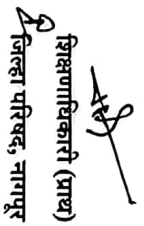 शिक्षणाधिकारी (प्राथ)
जिल्हा परिषद, नागपूर